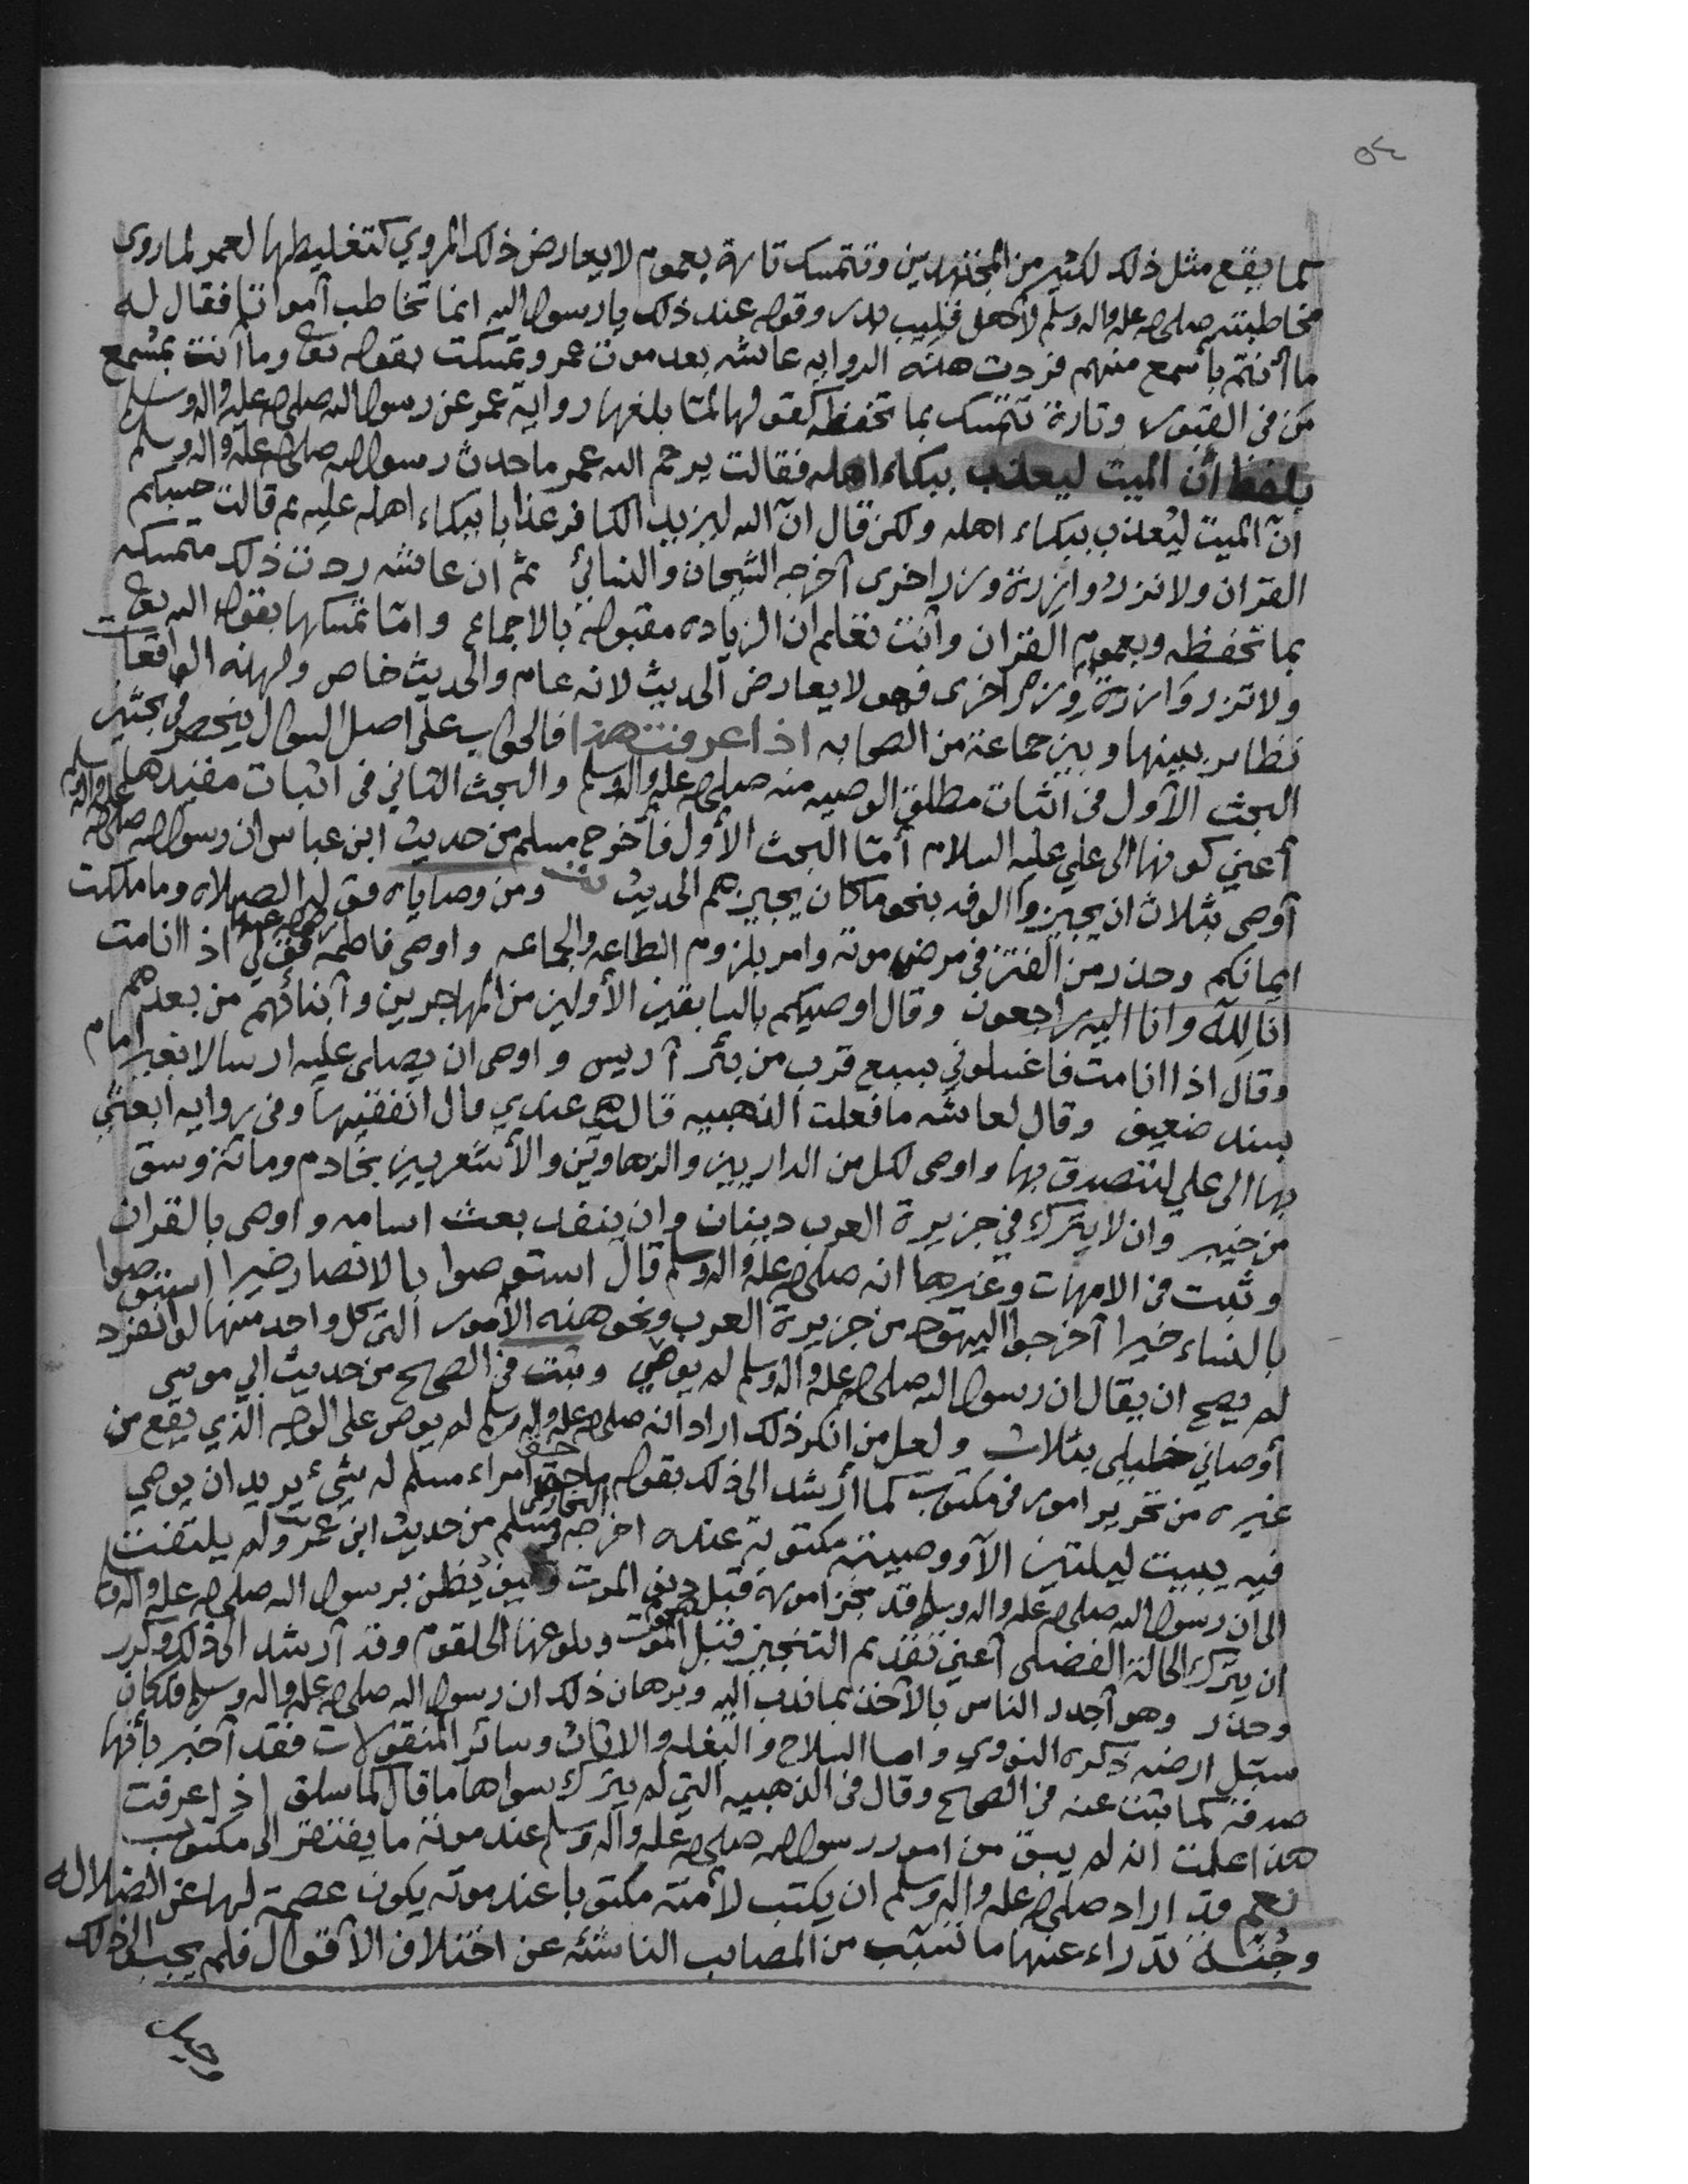 ٥٤
كما يقع مثل ذلك لكثير من المجتهدين وتتمسك تارة بعموم لا يعارض ذلك المروي كتغليطها لعمر لما روى
مخاطبته صلى الله عليه واله وسلم لاهل قليب بدر وقوله عند ذلك يا رسول الله انما تخاطب أمواتا فقال له
ما أنتم بأسمع منهم فردت هذه الروايه عائشه بعد موت عمر وتمسكت بقوله تعالى وما أنت بمسمع
من في القبور وتارة تتمسك بما تحفظه كقولها لمّا بلغها رواية عمر عن رسول الله صلى الله عليه واله وسلم
بلفظ أن الميت ليعذب ببكاء اهله فقالت يرحم الله عمر ما حدث رسول الله صلى الله عليه واله وسلم
انّ الميت ليُعذب ببكاء اهله ولكن قال انّ الله ليزيد الكافر عذابا ببكاء اهله عليه ثم قالت حسبكم
القران ولا تزر وازرة وزر اخرى أخرجه الشيخان والنسائي ثم ان عائشه ردت ذلك متمسكه
بما تحفظه وبعموم القران وأنت تعلم ان الزياده مقبوله بالاجماع وامّا تمسكها بقول الله تعالى
ولا تزر وازرة وزر اخرى فهو لا يعارض الحديث لانه عام والحديث خاص ولهذه الواقعات
نظائر بينها وبين جماعة من الصحابه اذا عرفت هذا فالجواب على اصل السوال ينحصر في بحثين
البحث الأول في اثبات مطلق الوصيه منه صلى الله عليه واله وسلم والبحث الثاني في اثبات مقيدها
أعني كونها الى علي عليه السلام أمّا البحث الأول فأخرج مسلم من حديث ابن عباس ان رسول الله صلى الله عليه واله وسلم
أوصى بثلاث ان يجيزوا الوفد بنحو ما كان يجيزهم الحديث ومن وصاياه قوله الصلاه وما ملكت
ايمانكم وحذر من الفتن في مرض موته وامر بلزوم الطاعه والجماعه واوصى فاطمه رضي الله عنها فقال قولي اذا انا مت
انا لله وانا اليه راجعون وقال اوصيكم بالسابقين الأولين من المهاجرين وأبنائهم من بعدهم
وقال اذا انا مت فاغسلوني بسبع قرب من بئر أريس واوصى ان يصلى عليه ارسالا بغير امام
بسند ضعيف وقال لعائشه ما فعلت الذهبيه قالت هي عندي قال انفقيها وفي روايه ابعثي
بها الى علي ليتصدق بها واوصى لكل من الداريين والرهاويين والأشعريين بخادم ومائة وسق
من خيبر وان لا يترك في جزيرة العرب دينان وان ينفذ بعث اسامه واوصى بالقران
وثبت في الامهات وغيرها انه صلى الله عليه واله وسلم قال استوصوا بالانصار خيرا استوصوا
بالنساء خيرا أخرجوا اليهود من جزيرة العرب ونحو هذه الأمور التي كل واحد منها لو انفرد
لم يصح ان يقال ان رسول الله صلى الله عليه واله وسلم لم يوص وثبت في الصحيح من حديث ابي موسى
أوصاني خليلي بثلاث ولعل من انكر ذلك اراد انه صلى الله عليه واله وسلم لم يوص على الوجه الذي يقع من
غيره من تحرير امور في مكتوب كما أرشد الى ذلك بقوله ما حق امراء مسلم له شيء يريد ان يوصي
فيه يبيت ليلتين الا ووصيته مكتوبة عنده اخرجه البخاري ومسلم من حديث ابن عمر ولم يلتفت
الى ان رسول الله صلى الله عليه واله وسلم قد نجز اموره قبل دنو الموت وكيف يُظن برسول الله صلى الله عليه واله وسلم
ان يترك الحالة الفضلى أعني تقديم التنجيز قبل هجوم الموت وبلوغها الحلقوم وقد أرشد الى ذلك وكرر
وحذر وهو أجدر الناس بالأخذ بما ندب اليه وبرهان ذلك ان رسول الله صلى الله عليه واله وسلم قد كان
سبّل ارضه ذكره النووي واما السلاح والبغله والاثاث وسائر المنقولات فقد أخبر بأنها
صدقة كما ثبت عنه في الصحيح وقال في الذهبيه التي لم يترك سواها ما قال كما سلف اذا عرفت
هذا علمت انه لم يبق من امور رسول الله صلى الله عليه واله وسلم عند موته ما يفتقر الى مكتوب
نعم قد اراد صلى الله عليه واله وسلم ان يكتب لأمته مكتوبا عند موته يكون عصمة لها عن الضلاله
وجُنّة تدراء عنها ما تسبّب من المصائب الناشئه عن اختلاف الأقوال فلم يجب الى ذلك
وحيل